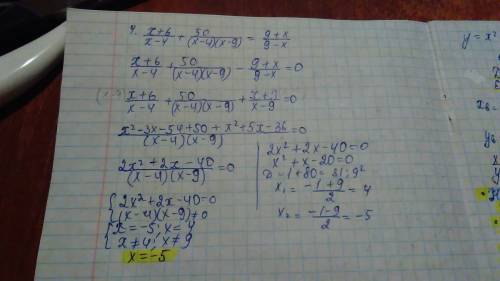 4. (x+6)/(x-4) + 50/((x-4)(x-9)) = (9+x)/(9-x)
(x+6)/(x-4) + 50/((x-4)(x-9)) - (9+x)/(9-x) = 0
(x+6)/(x-4) + 50/((x-4)(x-9)) + (x+9)/(x-9) = 0
(x²-3x-54+50+x²+5x-36)/((x-4)(x-9)) = 0
(2x²+2x-40)/((x-4)(x-9)) = 0
{ 2x²+2x-40=0
{ (x-4)(x-9)≠0
{ x=-5; x=4
{ x≠4; x≠9
x=-5
2x²+2x-40=0
x²+x-20=0
D=1+80=81; 9²
x₁=(-1+9)/2=4
x₂=(-1-9)/2=-5
y=x²